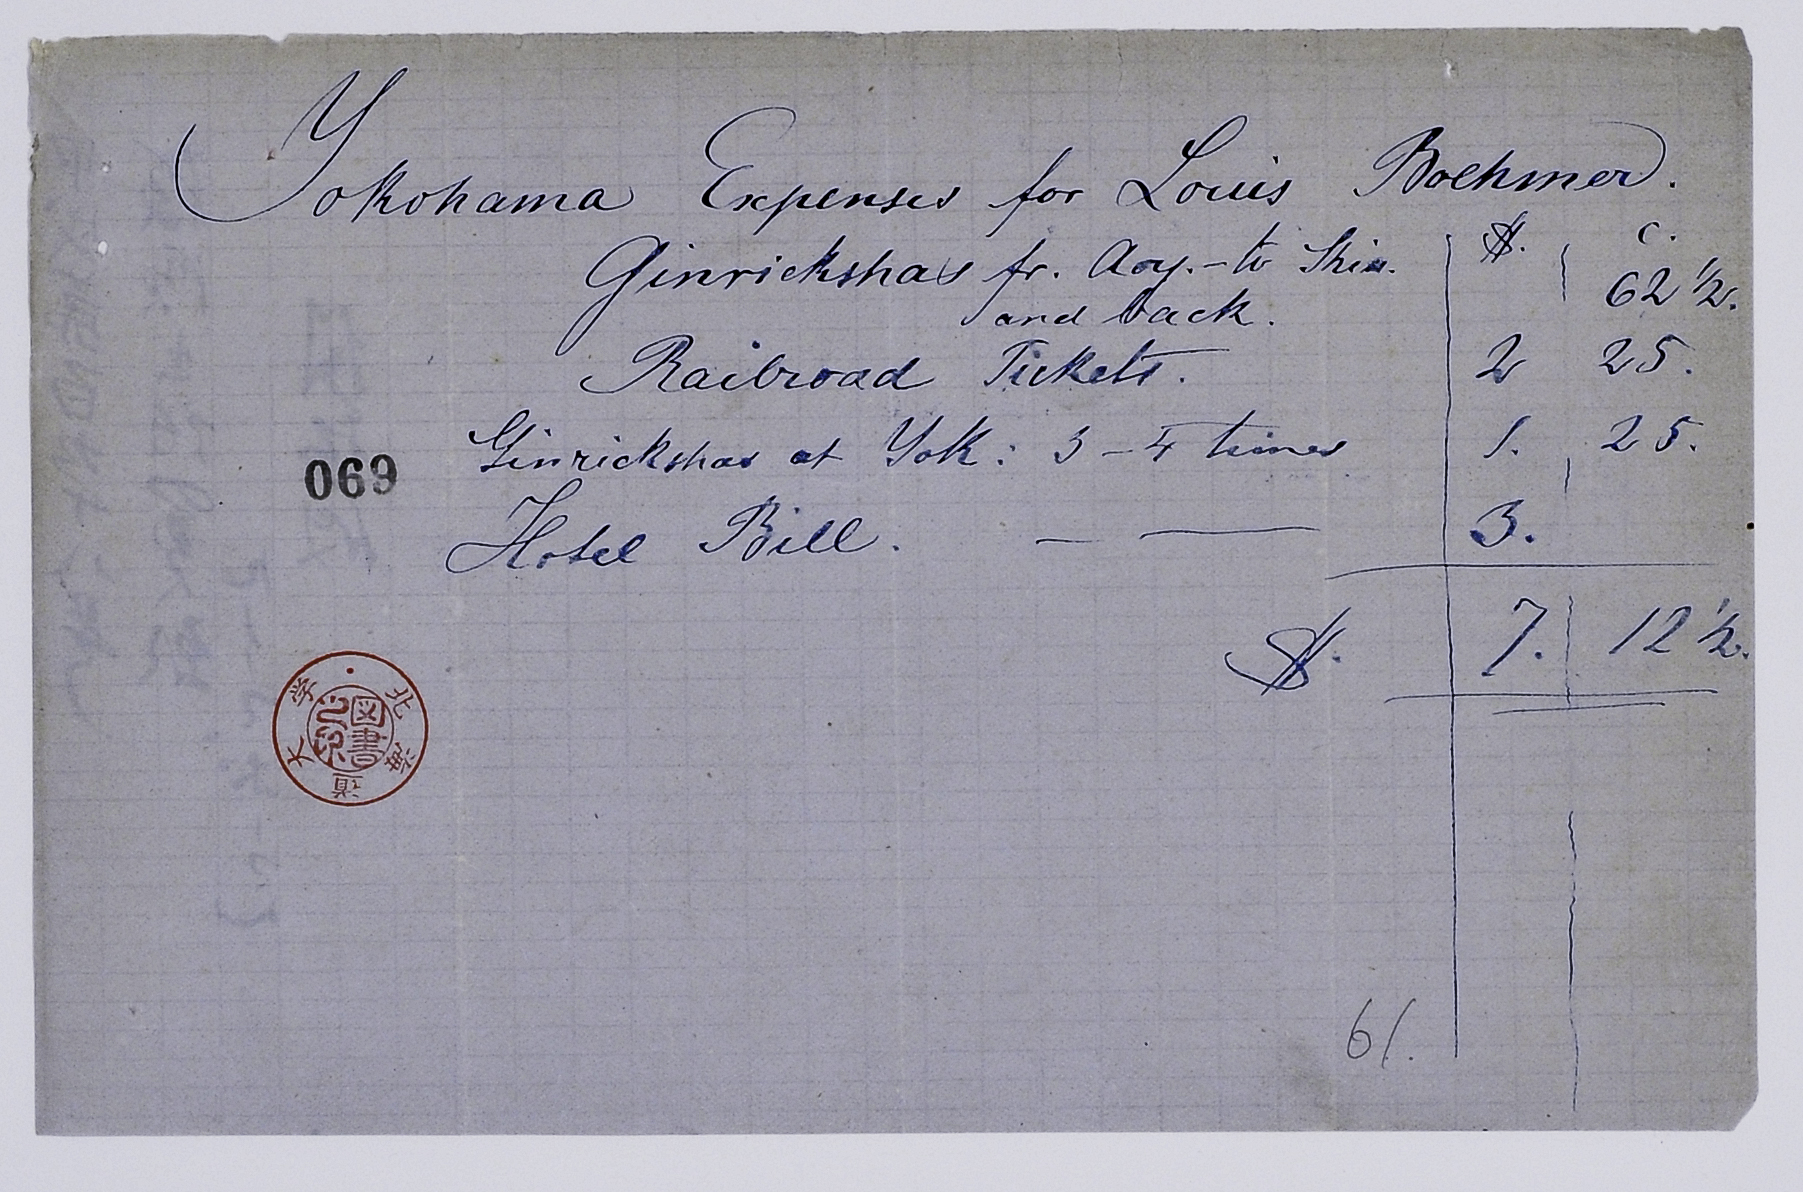 Yokohama Expenses for Louis Boehmer.
$. c.
Ginrickshas fr. Aoy.- to Shin. 62 1/2.
and back.
Railroad Tickets. 2 25.
Ginrickshas at Yok: 3 - 4 times 1. 25.
069
Hotel Bill. — — 3.
$. 7. 12 1/2.
北海道大学
図書
61.